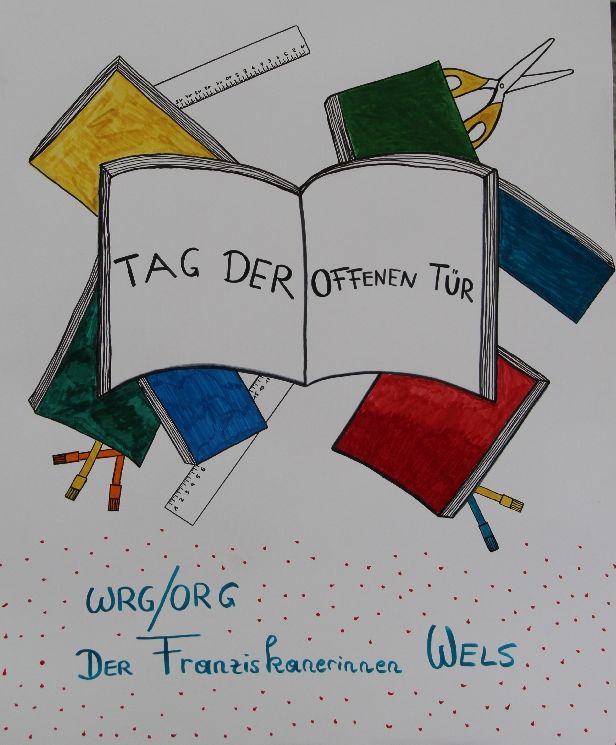 TAG DER OFFENEN TÜR
WRG/ORG
DER Franziskanerinnen WELS